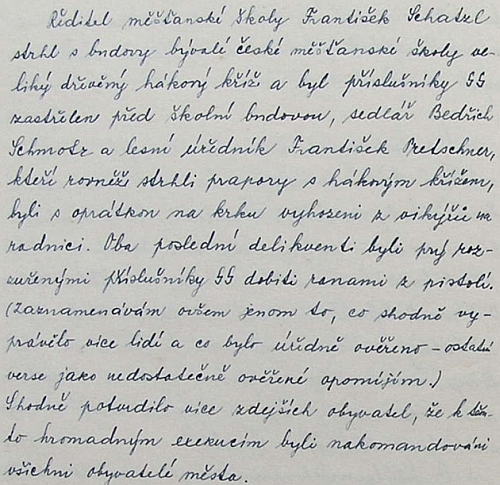 Ředitel měšťanské školy František Schatzl
strhl s budovy bývalé české měšťanské školy ve-
liký dřevěný hákový kříž a byl příslušníky SS
zastřelen před školní budovou, sedlář Bedřich
Schmotz a lesní úředník František Pretschner,
kteří rovněž strhli prapory s hákovým křížem,
byli s oprátkou na krku vyhozeni z vikýřů na
radnici. Oba poslední delikventi byli prý roz-
zuřenými příslušníky SS dobiti ranami z pistolí.
(Zaznamenávám ovšem jenom to, co shodně vy-
právělo více lidí a co bylo úředně ověřeno – ostatní
verse jako nedostatečně ověřené opomíjím.)
Shodně potvrdilo více zdejších obyvatel, že k těm-
to hromadným exekucím byli nakomandováni
všichni obyvatelé města.